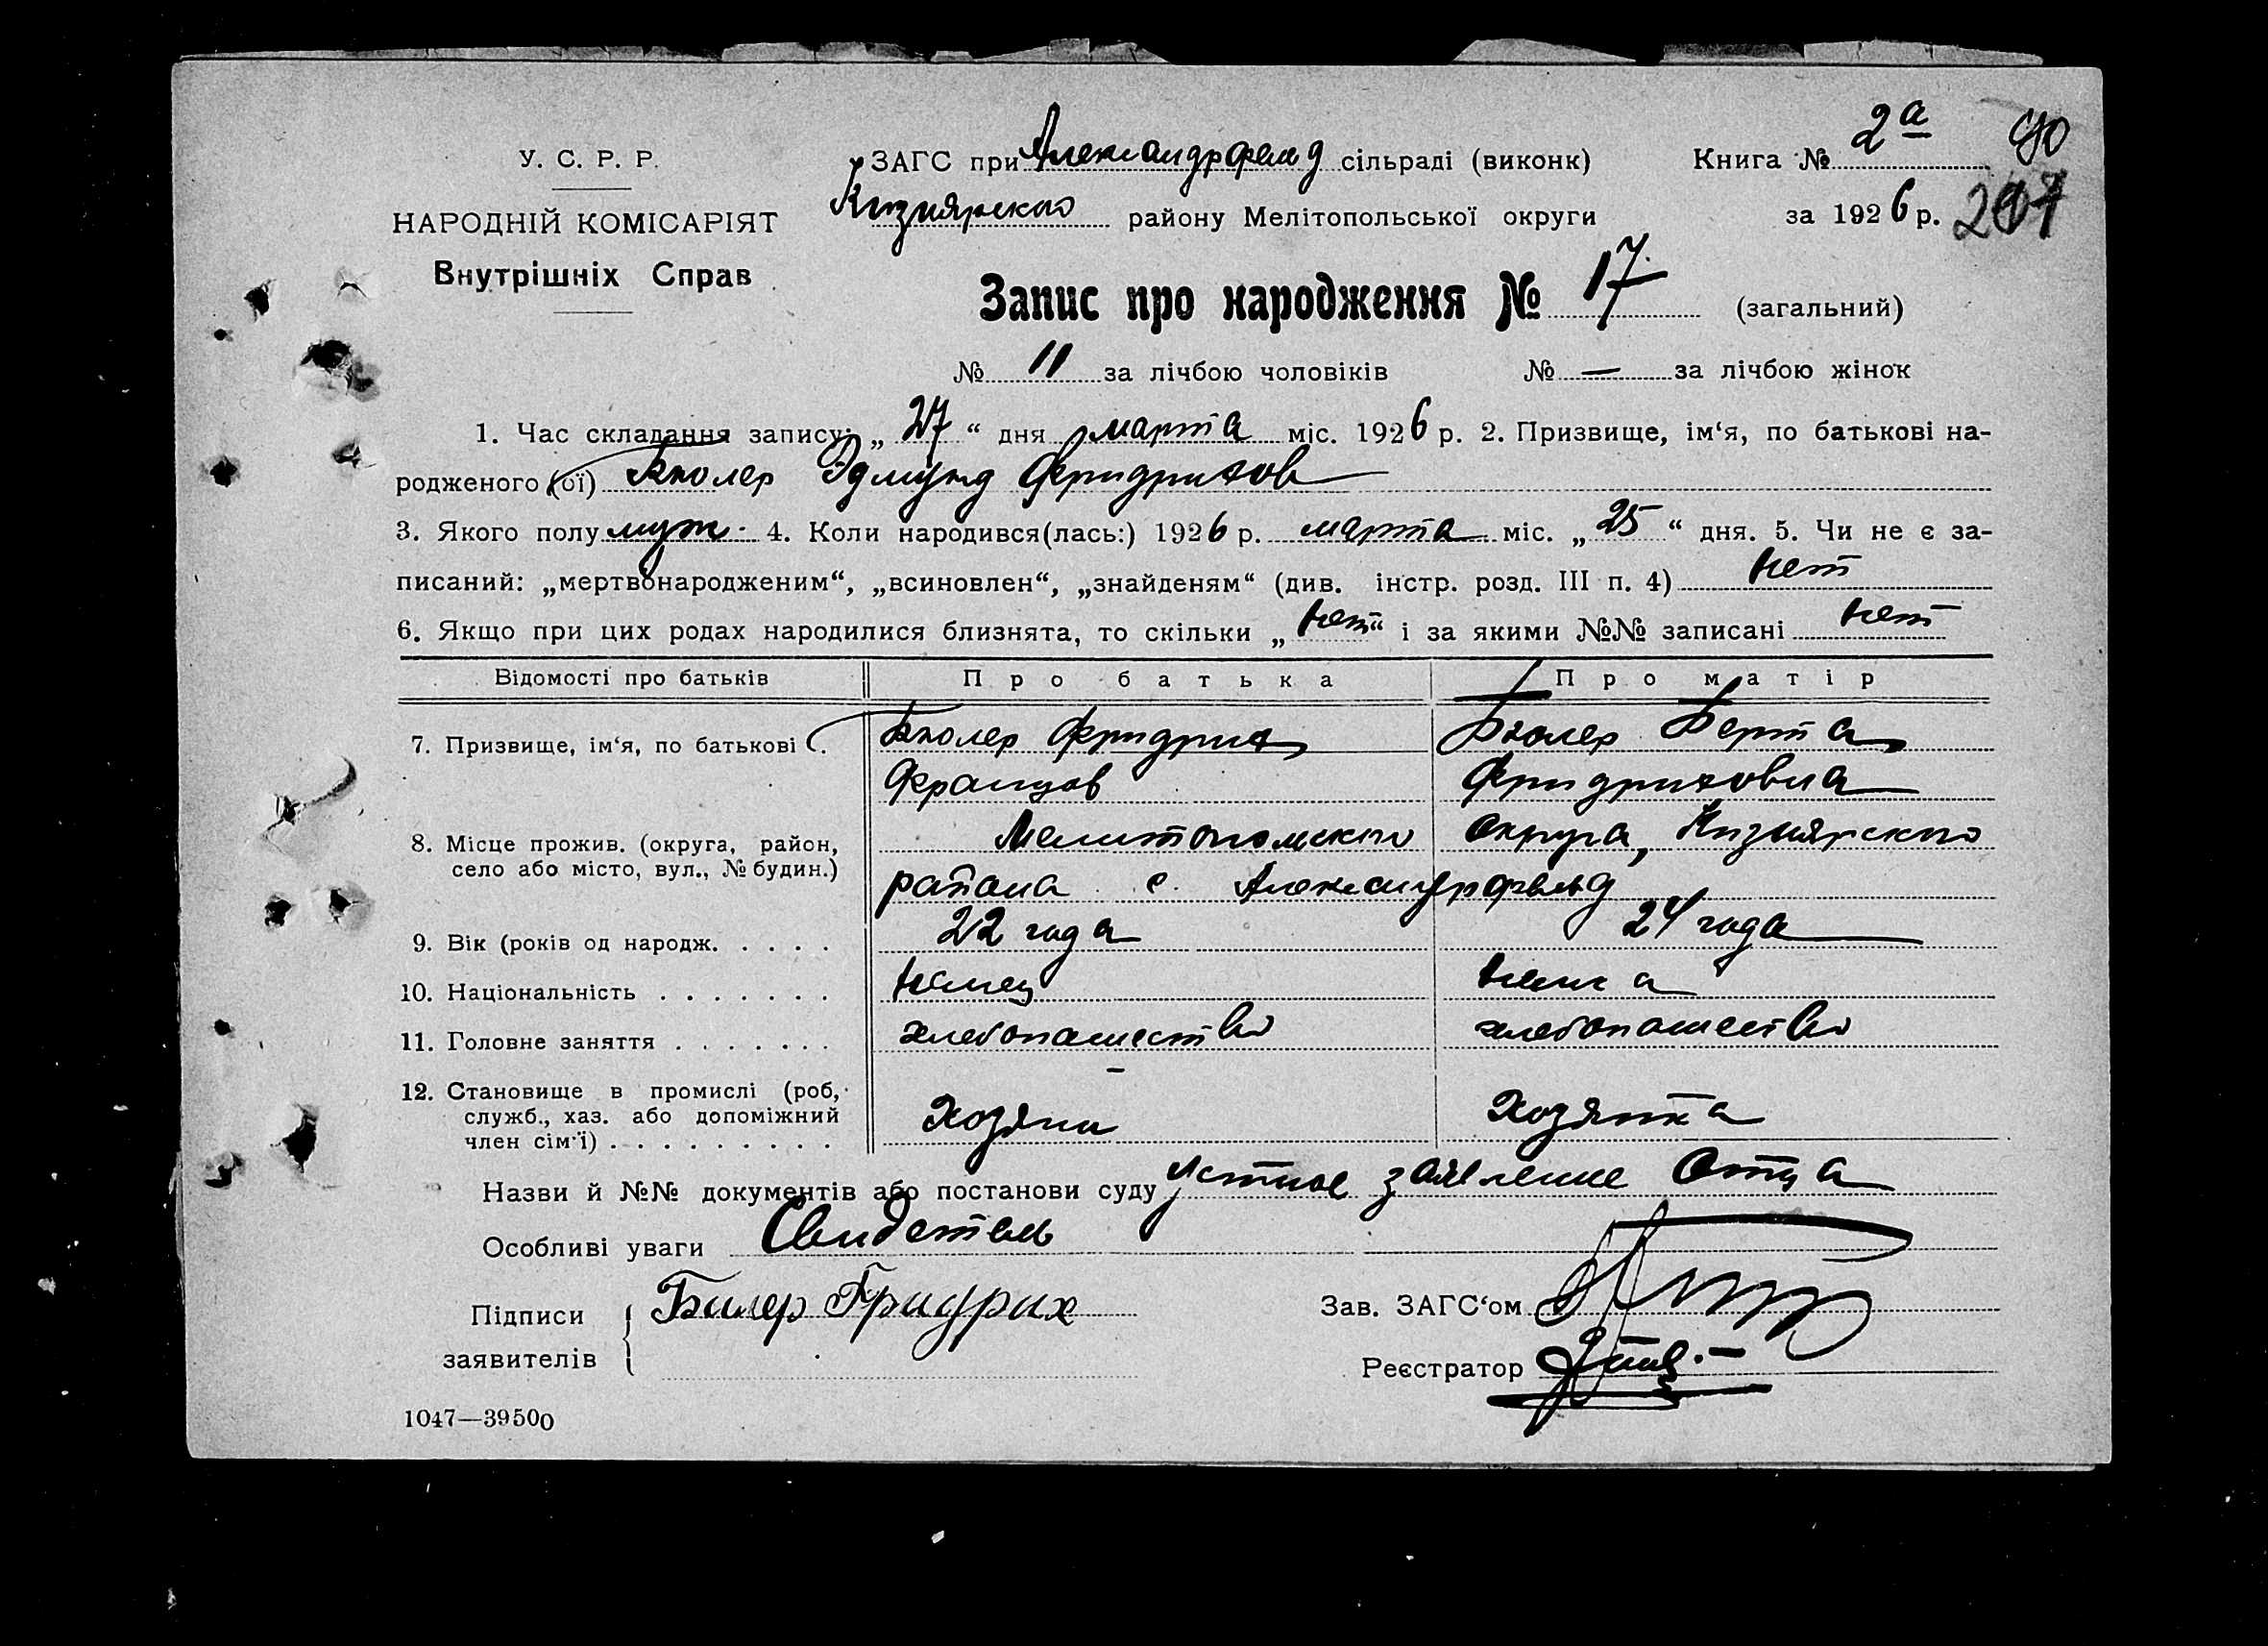 У. С. Р. Р.
НАРОДНІЙ КОМІСАРІЯТ
Внутрішніх Справ
ЗАГС при Александрфельд сільраді (виконк)
Кизиярского району Мелітопольської округи
Книга № 2а
за 1926 р.
Запис про народження № 17 (загальний)
№ 11 за лічбою чоловіків № — за лічбою жінок
1. Час складання запису: „ 27 “ дня марта міс. 1926 р. 2. Призвище, ім‘я, по батькові на-
родженого (ої) Бюлер Эдмунд Фридрихов
3. Якого полу муж. 4. Коли народився(лась:) 1926 р. марта міс. „ 25 “ дня. 5. Чи не є за-
писаний: „мертвонародженим“, „всиновлен“, „знайденям“ (див. інстр. розд. III п. 4) нет
6. Якщо при цих родах народилися близнята, то скільки „ нет “ і за якими №№ записані нет
Відомості про батьків Про батька Про матір
7. Призвище, ім‘я, по батькові . Бюлер Фридрих Бюлер Берта
Францов Фридриховна
8. Місце прожив. (округа, район, Мелитопольского округа, Кизиярского
село або місто, вул., № будин.) района с. Александрфельд
9. Вік (років од народж. . . . . 22 года 24 года
10. Національність . . . . . . . немец немка
11. Головне заняття . . . . . . . хлебопашество хлебопашество
12. Становище в промислі (роб,
служб., хаз. або допоміжний Хозяин Хозяйка
член сім‘ї) . . . . . . . . .
Назви й №№ документів або постанови суду Устное заявление Отца
Особливі уваги Свидетель
Підписи Билер Фридрих Зав. ЗАГС‘ом
заявителів Реєстратор
1047—39500